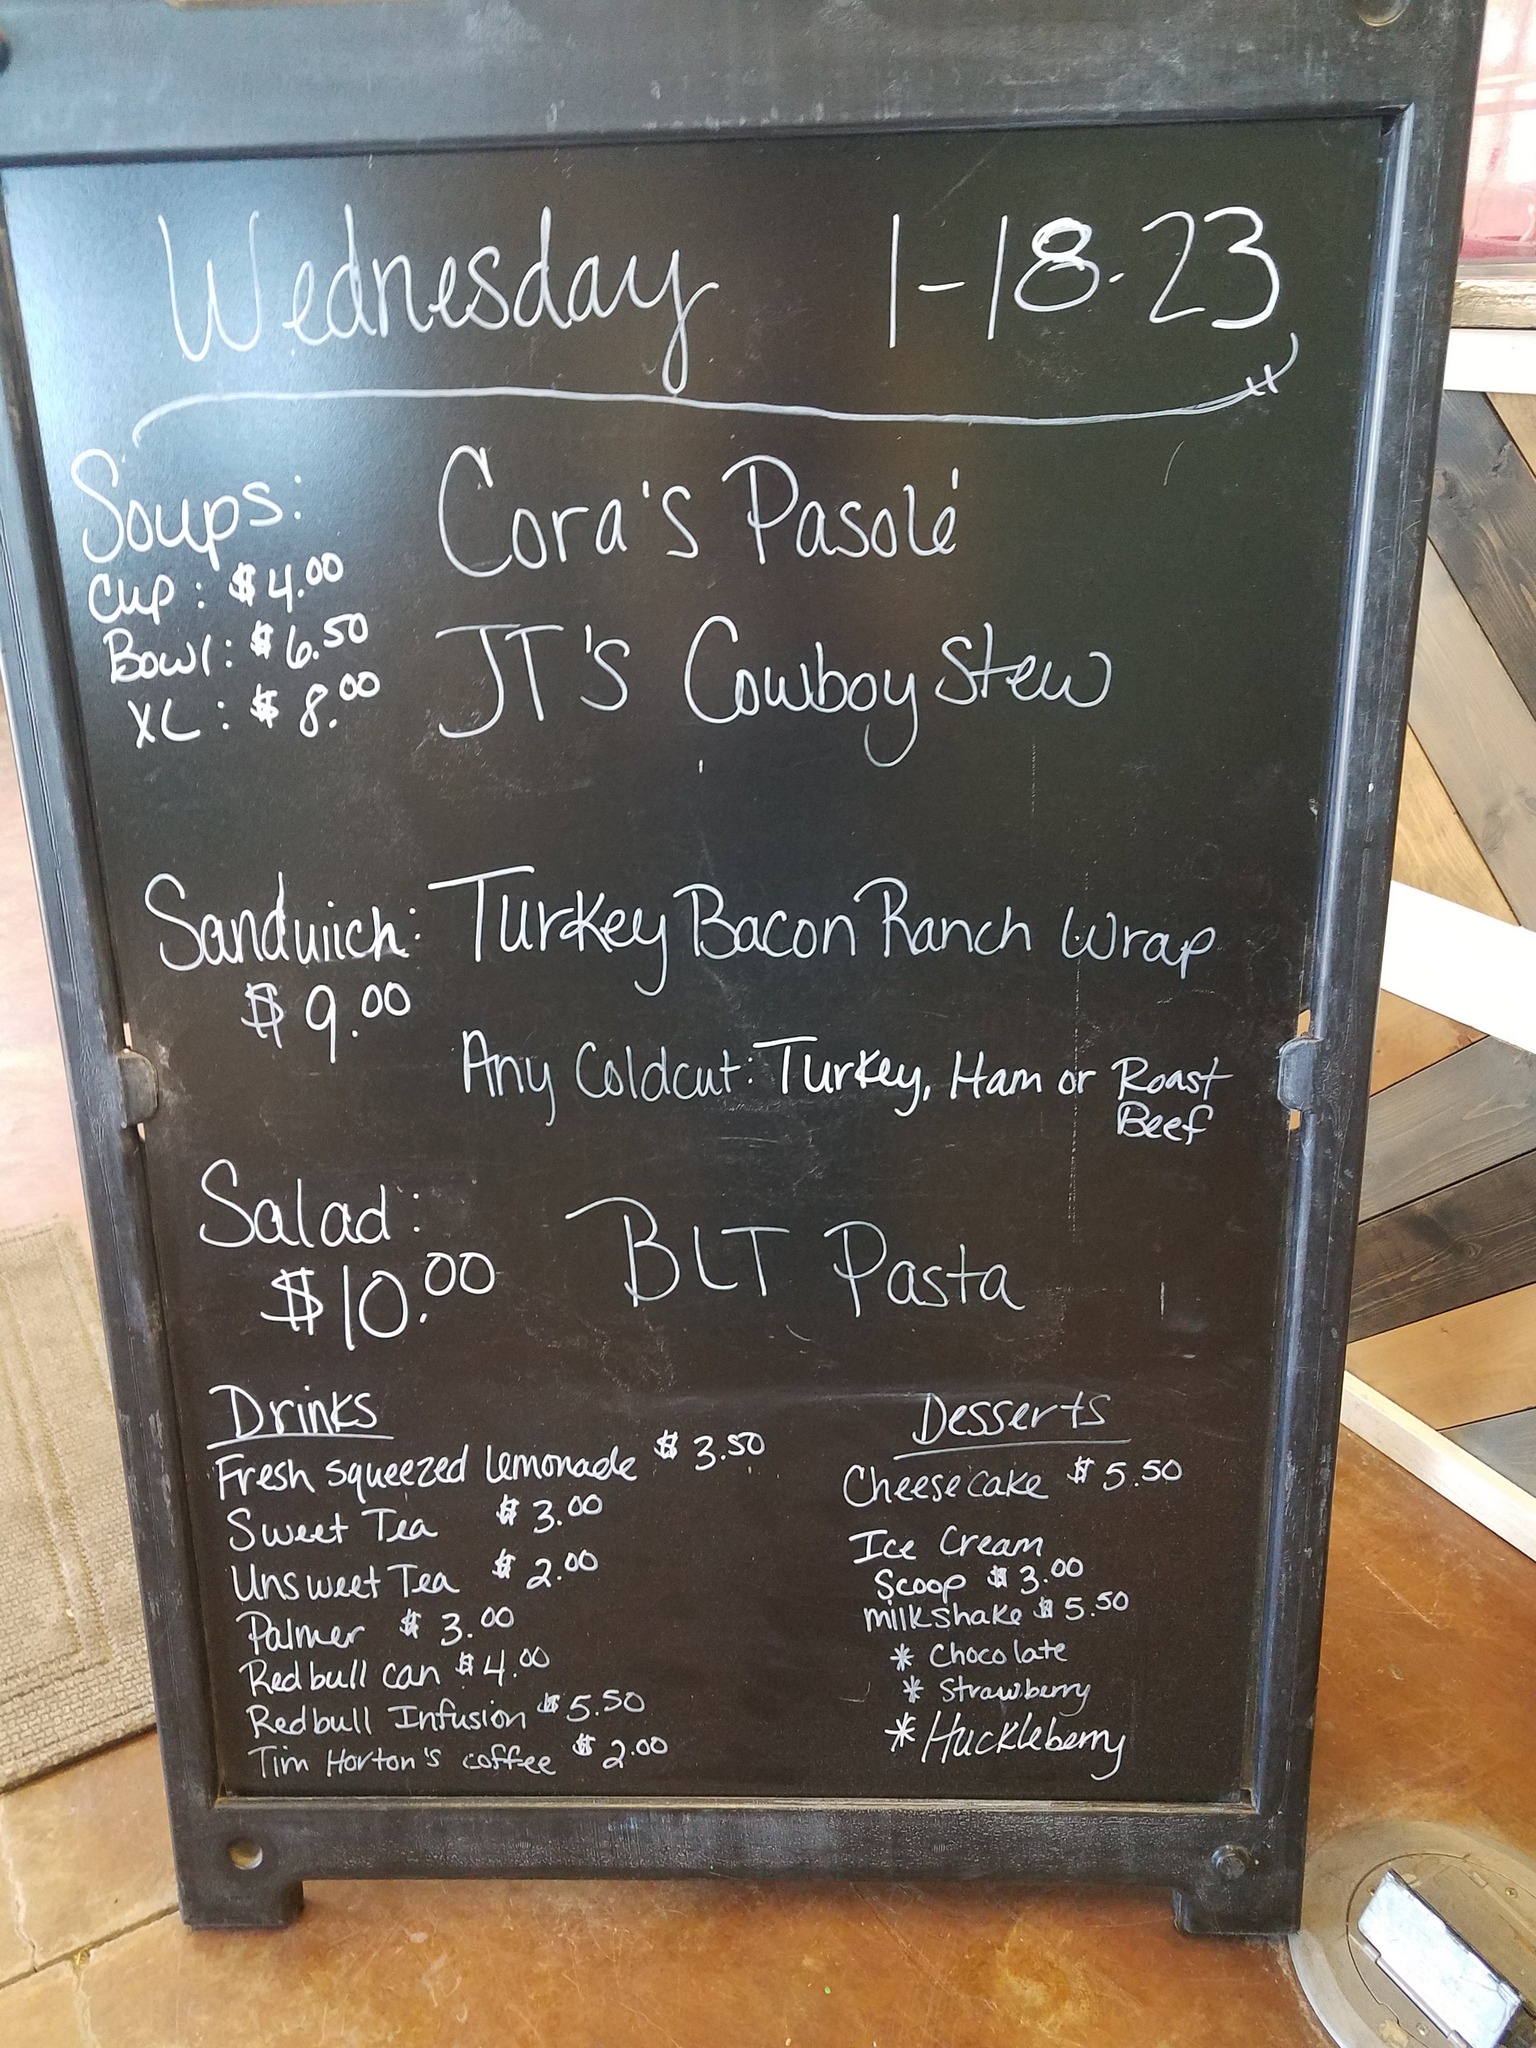 Wednesday 1-18-23
Soups: Cora's Pasolé
Cup: $4.00
Bowl: $6.50
XL: $8.00
JT's Cowboy Stew
Sandwich: Turkey Bacon Ranch Wrap
$9.00
Any Coldcut: Turkey, Ham or Roast
Beef
Salad: BLT Pasta
$10.00
Drinks
Fresh squeezed lemonade $3.50
Sweet Tea $3.00
Unsweet Tea $2.00
Palmer $3.00
Redbull can $4.00
Redbull Infusion $5.50
Tim Horton's coffee $2.00
Desserts
Cheesecake $5.50
Ice Cream
Scoop $3.00
milkshake $5.50
* Chocolate
* Strawberry
* Huckleberry